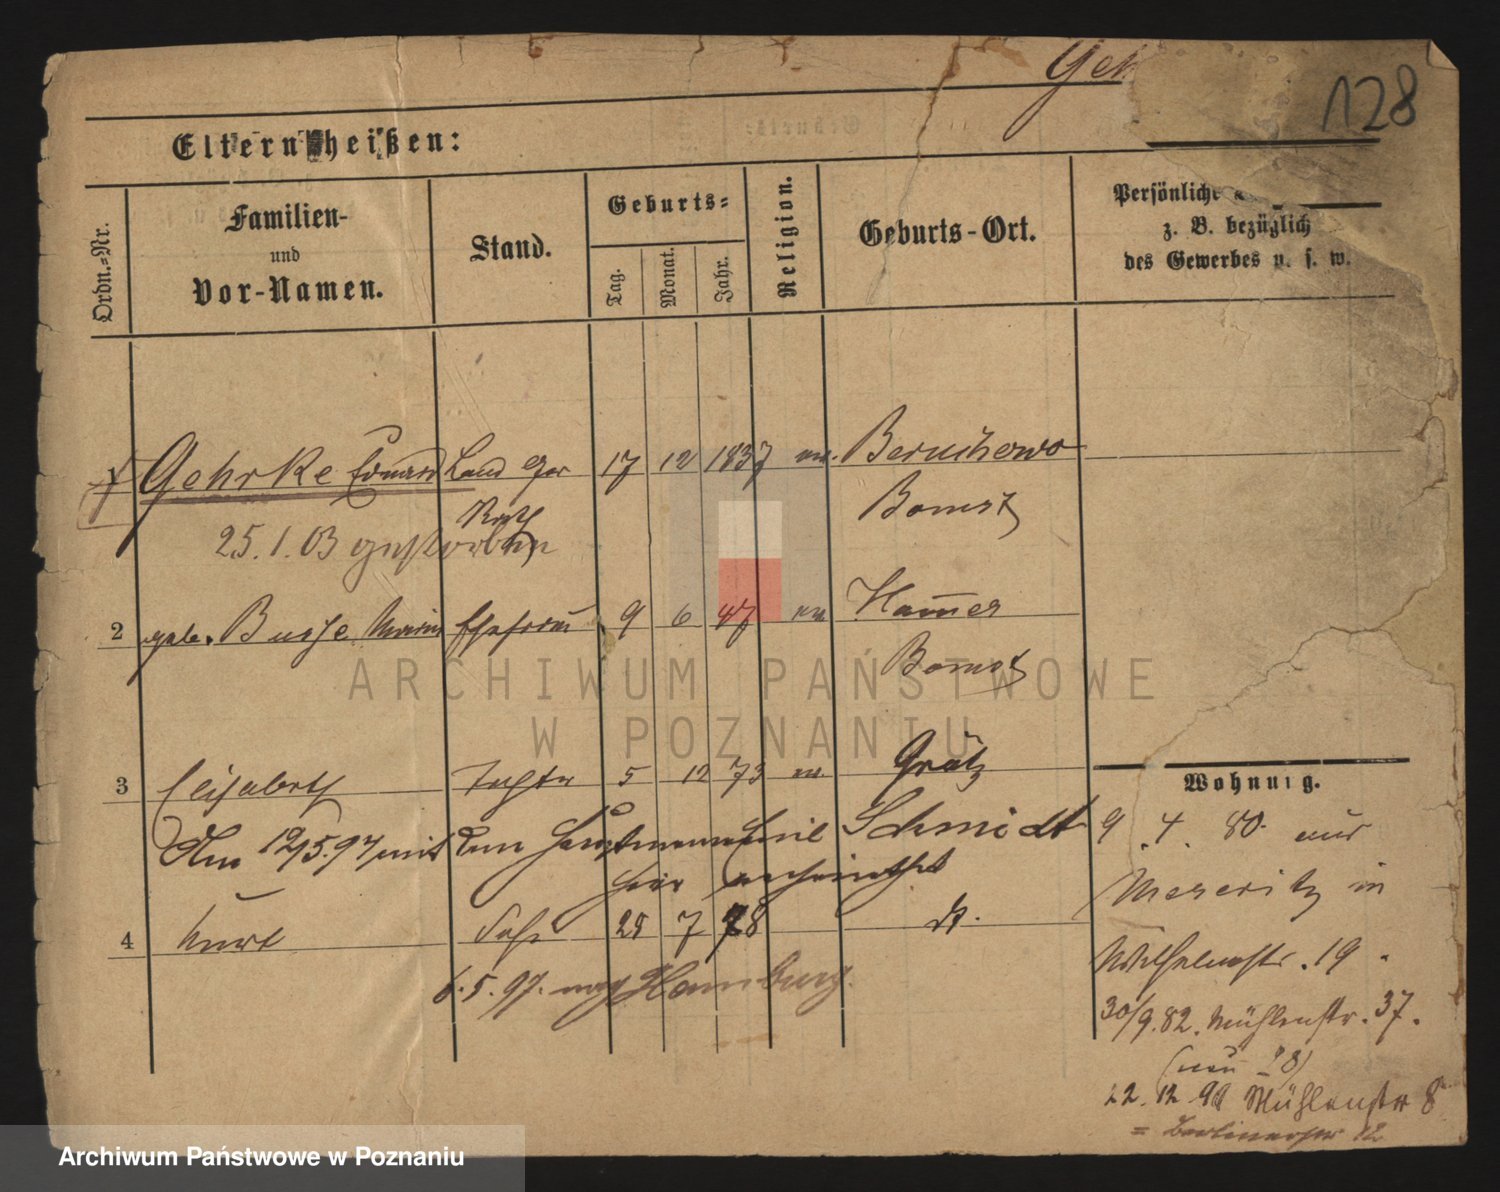 Geh
128
Eltern heißen:
Ordn.-Nr.
Familien-
und
Vor-Namen.
Stand.
Geburts-
Tag.
Monat.
Jahr.
Religion.
Geburts-Ort.
Persönliche
z. B. bezüglich
des Gewerbes u. s. w.
1 Gehrke Eduard Land Ger 17 12 1837 ev. Beruchowo
Rath Bomst
25.1.03 gestorben
2 geb. Busse Maria Ehefrau 9 6 47 ev Hammer
Bomst
3 Elisabeth Tochter 5 12 73 ev Grätz
Am 12/5.97 mit dem Hauptmann Emil Schmidt
hier verheirathet
4 Kurt Sohn 28 7 78 dt.
6.5.97. nach Hamburg.
Wohnung.
9.4.80. aus
Meseritz in
Wilhelmstr. 19.
30/9.82. Mühlenstr. 37.
(neu 8)
22.12.98 Mühlenstr 8
= Berlinerstr 12
ARCHIWUM PAŃSTWOWE
W POZNANIU
Archiwum Państwowe w Poznaniu